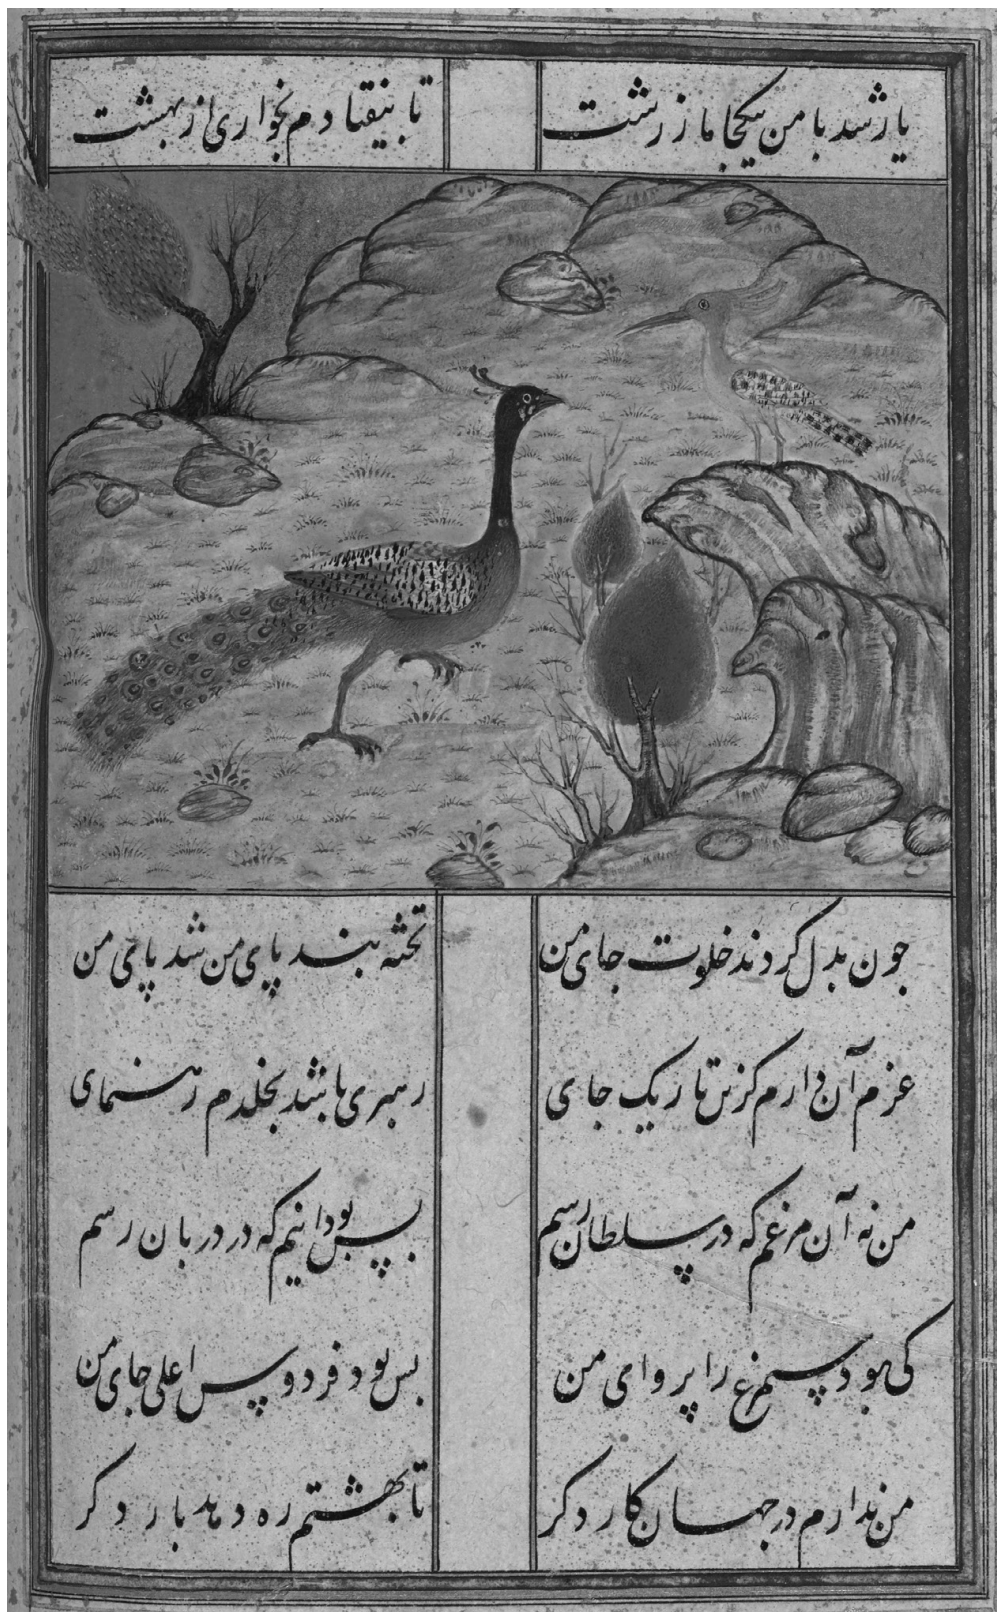 یار شد با من یکجا مار زشت
تا بیفتادم بخواری از بهشت
چون بدل کردند خلوت جای من
تخته بند پای من شد پای من
عزم آن دارم کزین تاریک جای
رهبری باشد بخلدم رهنمای
من نه آن مرغم که در سلطان رسم
بس بود اینم که در دربان رسم
کی بود سیمرغ را پروای من
بس بود فردوس اعلی جای من
من ندارم در جهان کار دگر
تا بهشتم ره دهد بار دگر